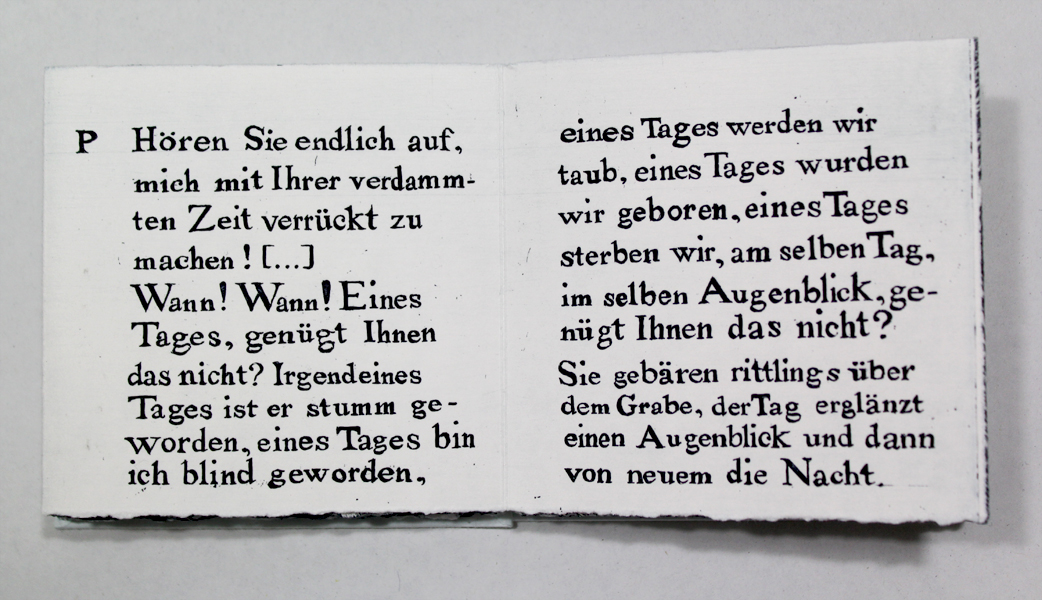 P Hören Sie endlich auf,
mich mit Ihrer verdamm-
ten Zeit verrückt zu
machen! [...]
Wann! Wann! Eines
Tages, genügt Ihnen
das nicht? Irgendeines
Tages ist er stumm ge-
worden, eines Tages bin
ich blind geworden,
eines Tages werden wir
taub, eines Tages wurden
wir geboren, eines Tages
sterben wir, am selben Tag,
im selben Augenblick, ge-
nügt Ihnen das nicht?
Sie gebären rittlings über
dem Grabe, der Tag erglänzt
einen Augenblick und dann
von neuem die Nacht.